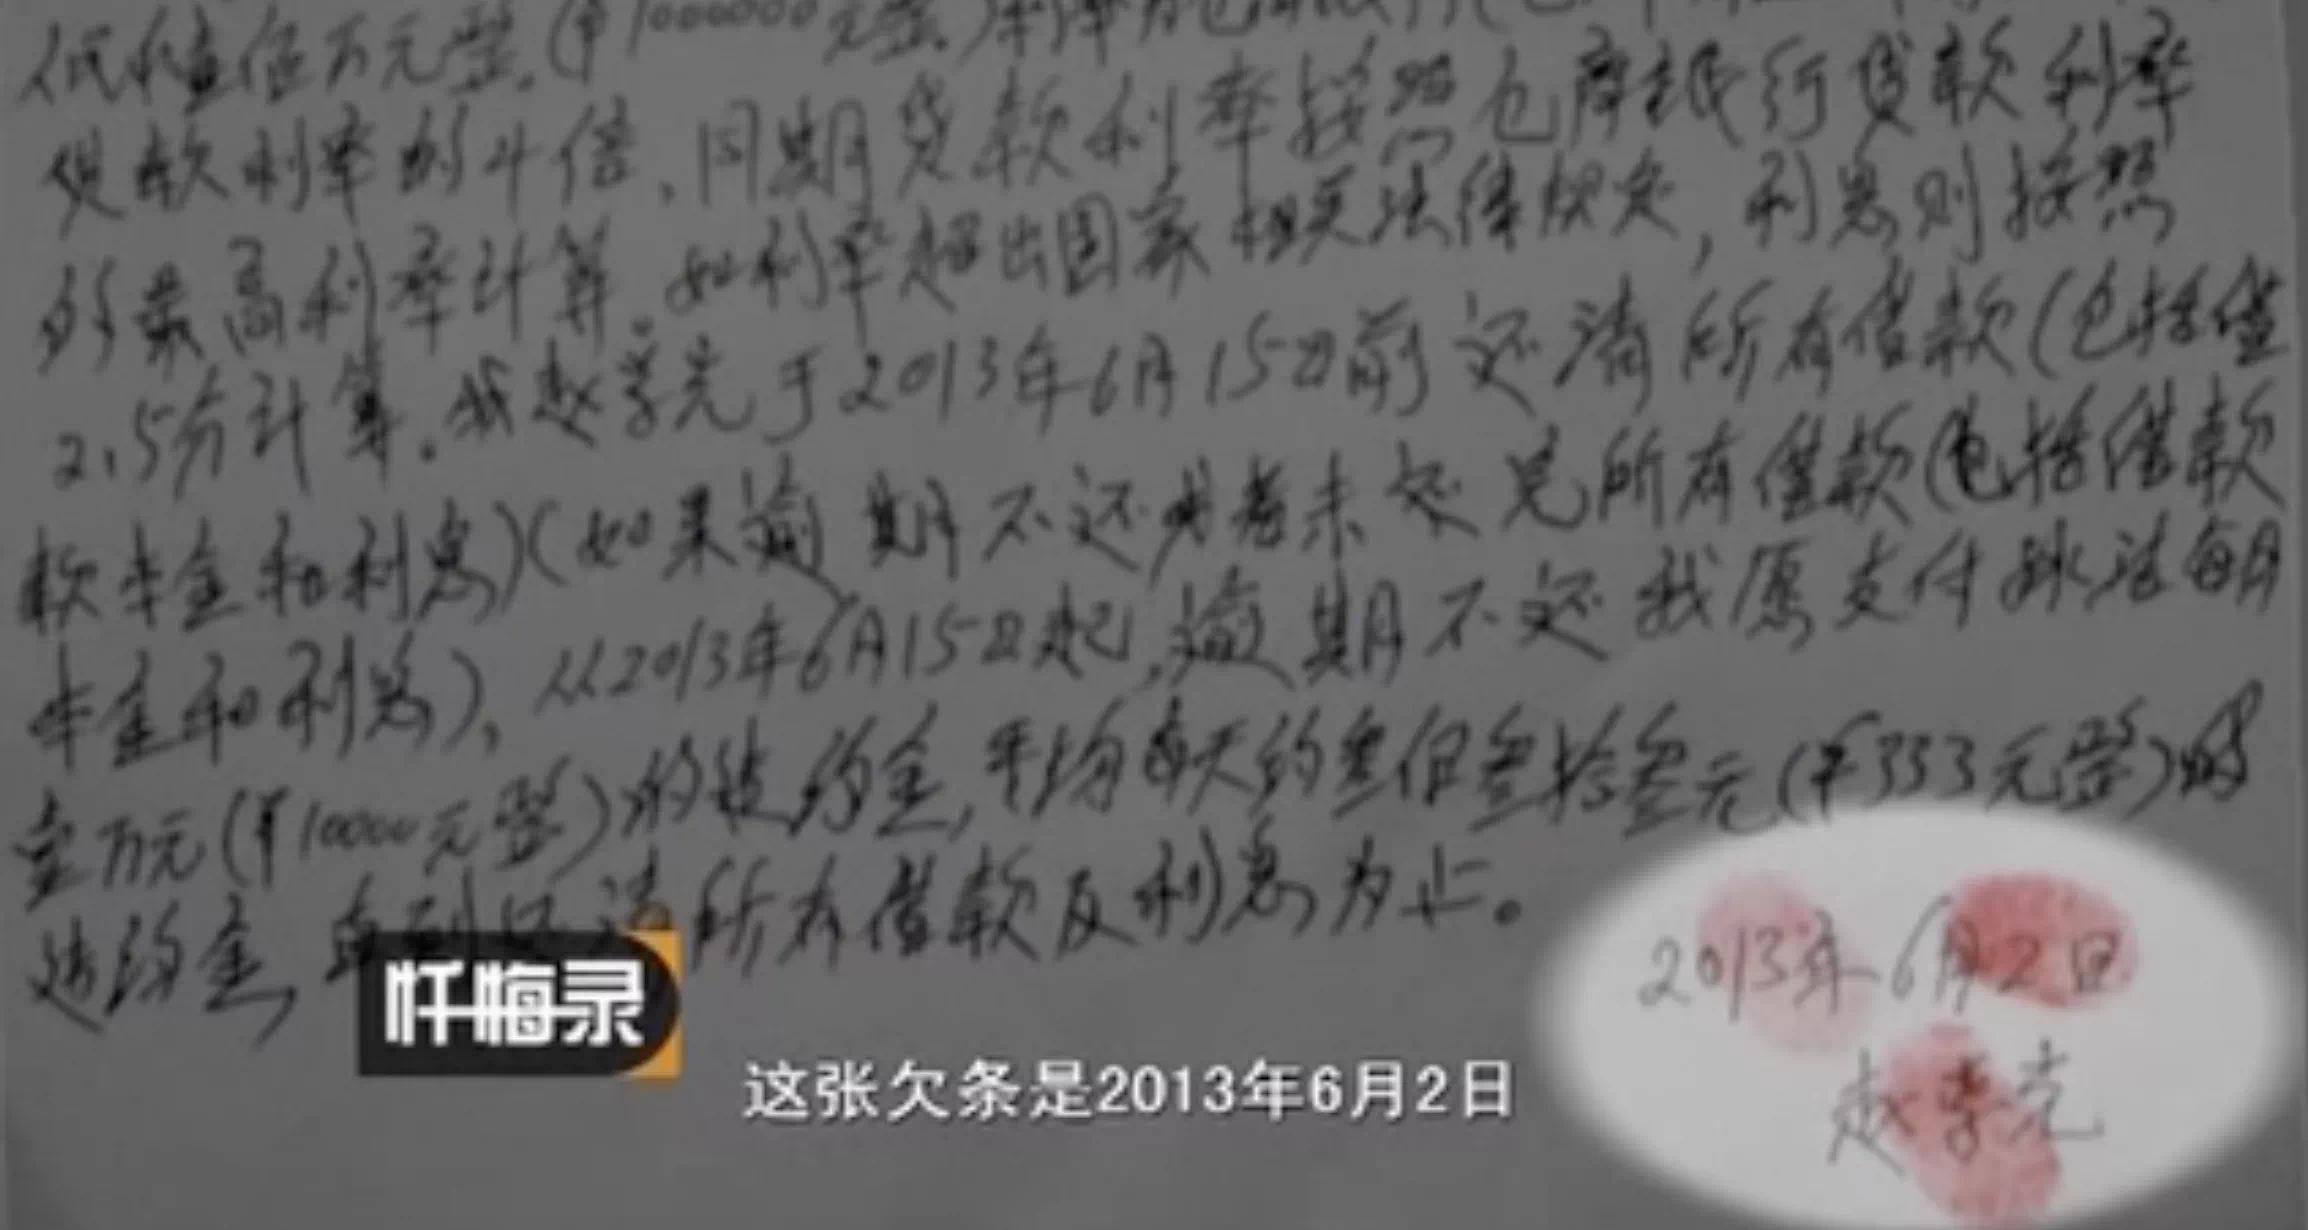 万元整(¥1000000元整)利率
贷款利率的4倍,同期贷款利率按照仓库银行贷款利率
的最高利率计算。如利率超出国家相关法律规定,利息则按照
2.5分计算。我赵学光于2013年6月15日前还清所有借款(包括借
款本金和利息)(如果逾期不还或者未还完所有借款(包括借款
本金和利息),从2013年6月15日起,逾期不还我愿支付 每月
壹万元(¥10000元整)的违约金,平均每天约叁佰叁拾叁元(¥333元整)的
违约金,直到还清所有借款及利息为止。
2013年6月2日
赵学光
忏悔录
这张欠条是2013年6月2日